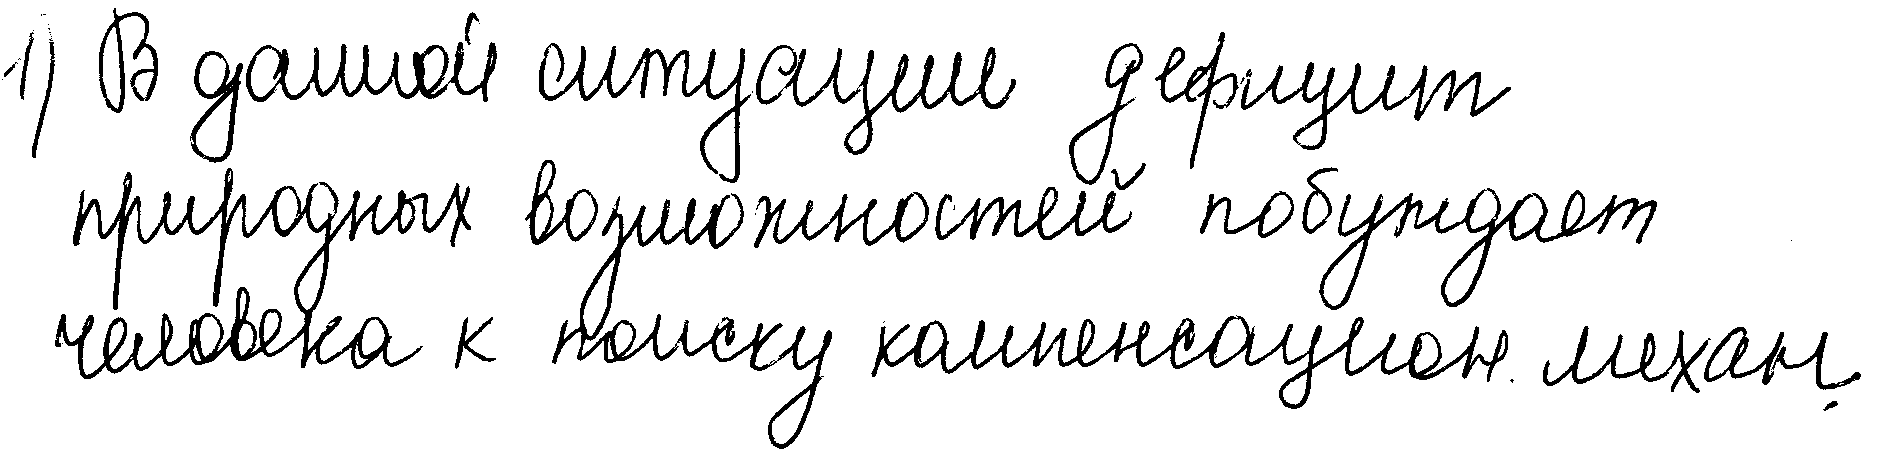 1) В данной ситуации дефицит
природных возможностей побуждает
человека к поиску компенсацион. механ.